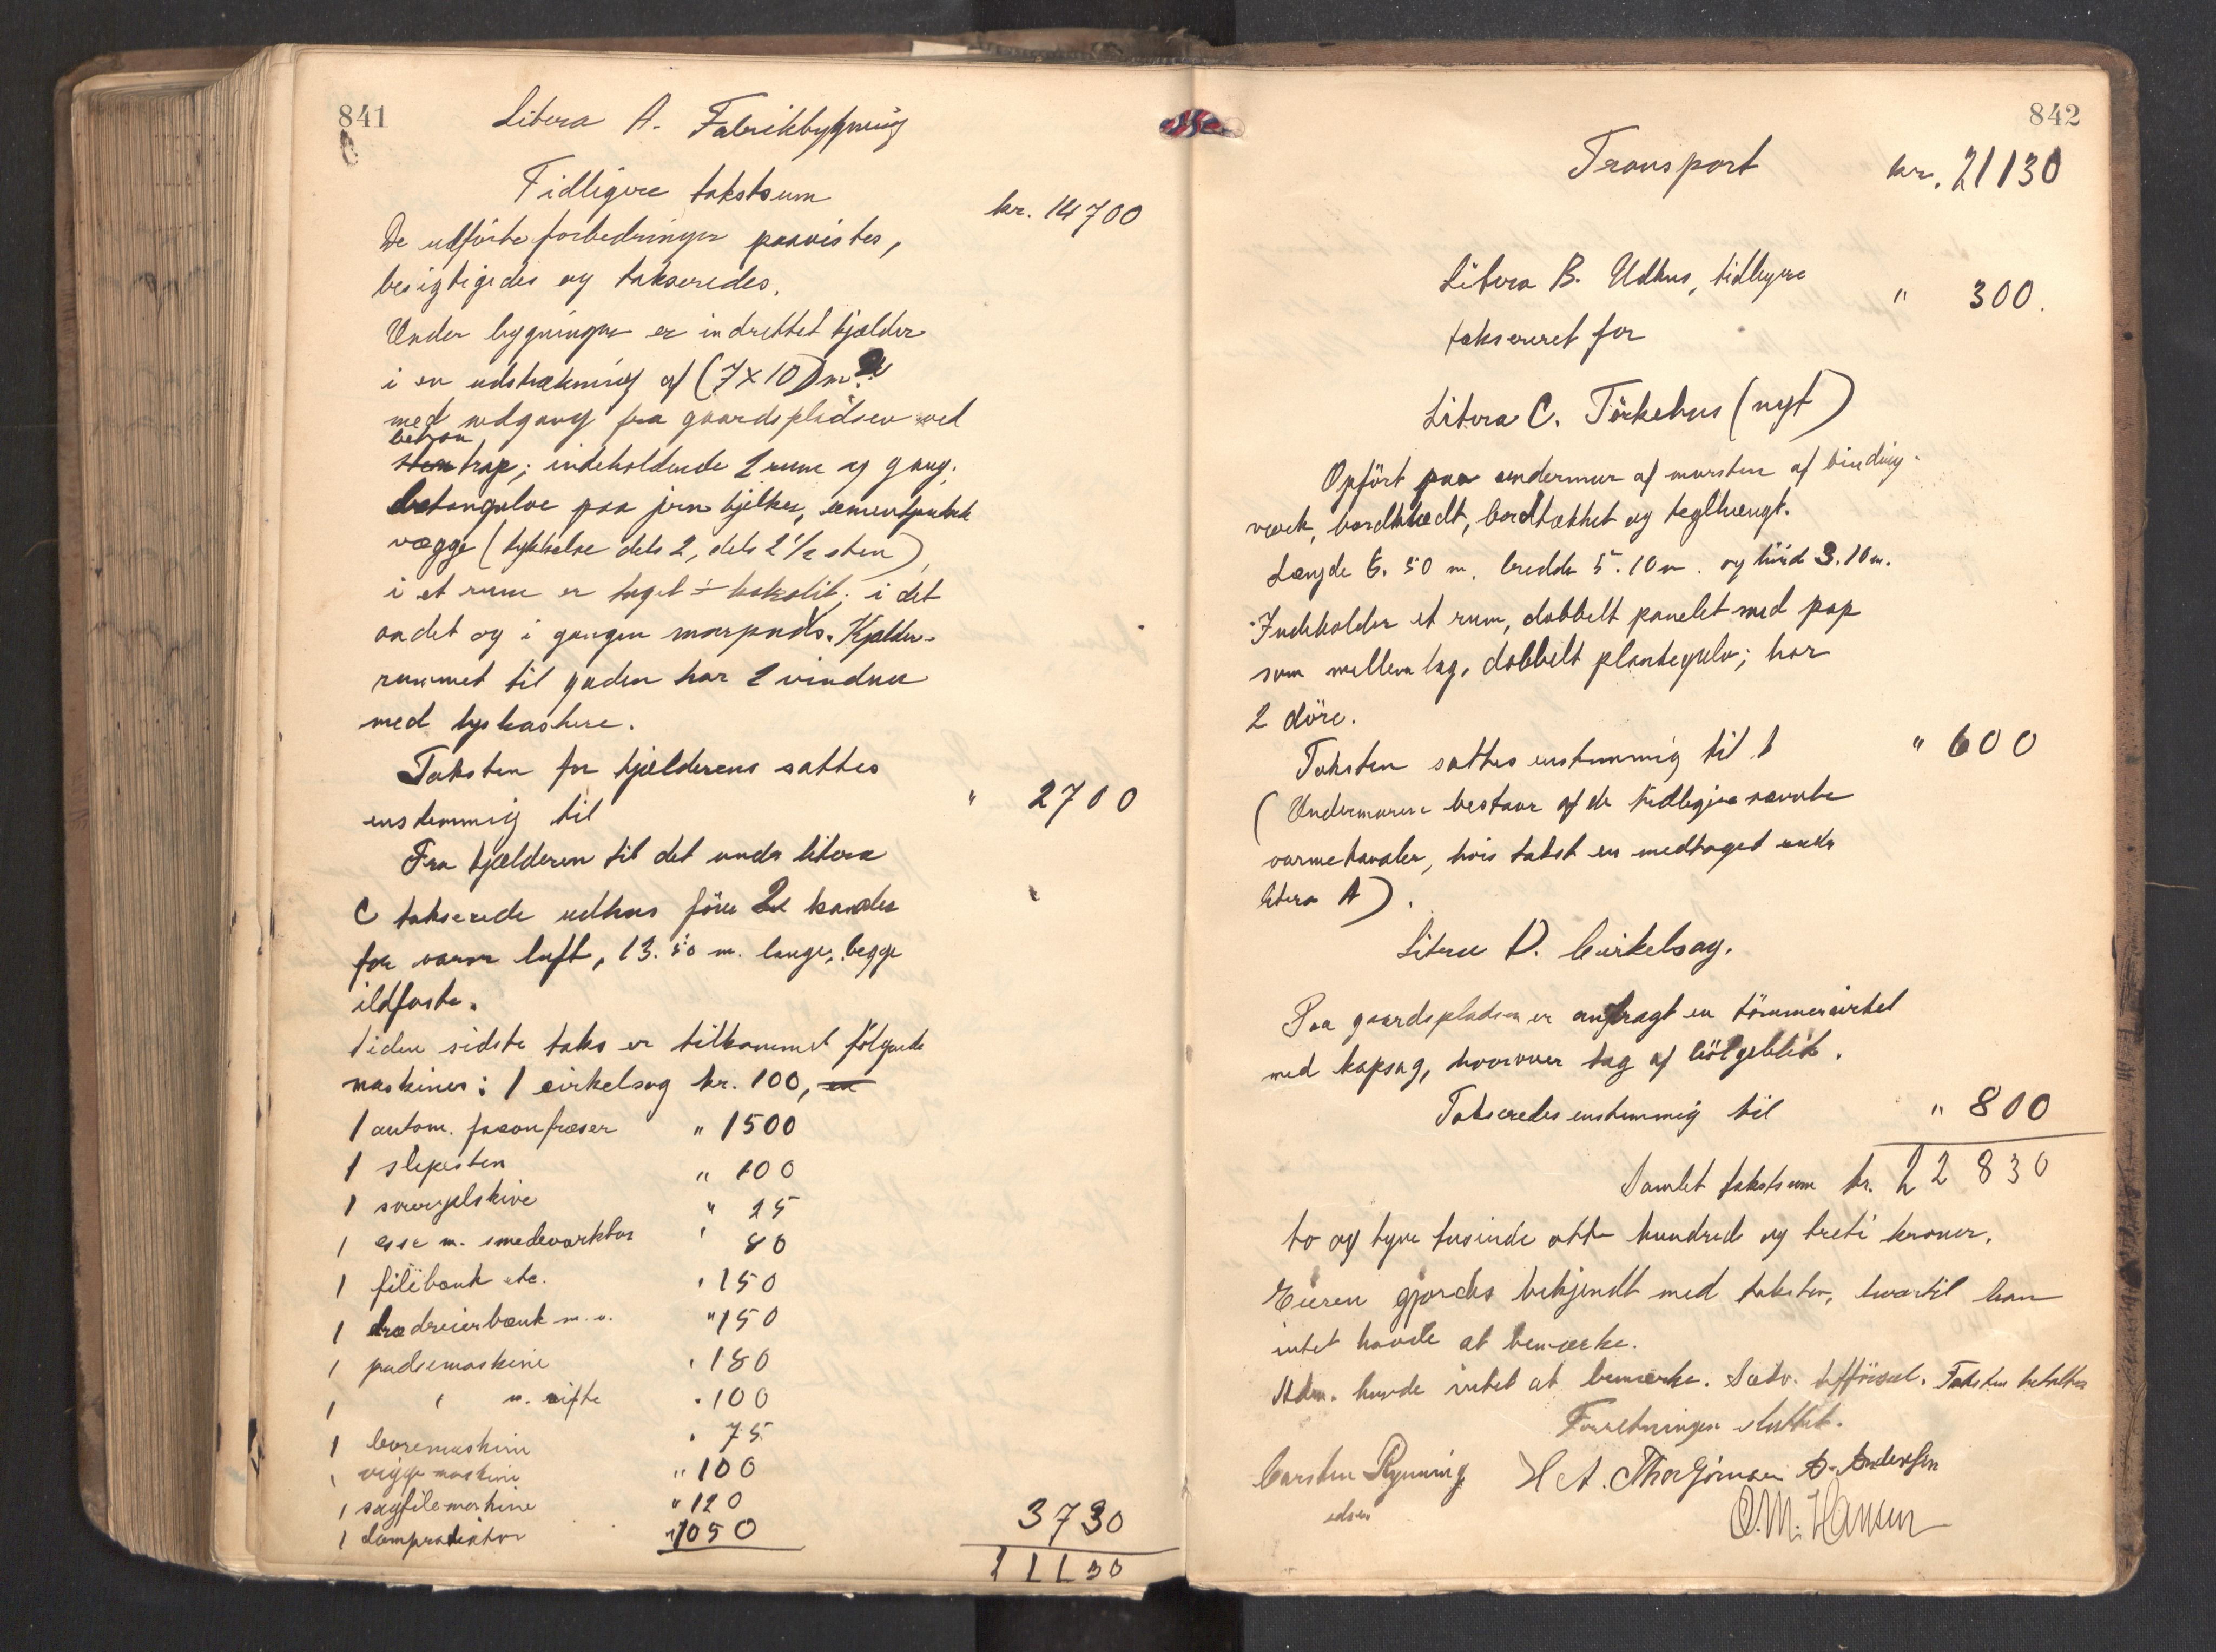 841
Litera A. Fabrikbygning
Tidligere takstsum kr. 14700
De udförte forbedringer paavistes,
besigtigedes og takseredes.
Under bygningen er indrettet kjælder
i en udstrækning af (7 x 10) m²
med nedgang fra gaardspladsen ved
beton
sten trap; indeholdende 2 rum og gang.
betongulve paa jern bjelker, cementpudsede
vægge (tykkelse dels 2, dels 2 1/2 sten),
i et rum er taget
i det
andet og i gangen murpuds. Kjælder-
rummet til gaden har 2 vinduer
med lyskastere.
Taksten for kjælderens sattes
enstemmig til " 2700
Fra kjælderen til det under litera
C takserede udhus förer 2 kanaler
for varm luft, 13.50 m. lange, begge
ildfaste.
Siden sidste takst er tilkommet fölgende
maskiner: 1 cirkelsag kr. 100, en
1 autom. faconfræser " 1500
1 slipesten " 100
1 smergelskive " 25
1 esse m. smedeverktoi " 80
1 filebænk etc. " 150
1 trædreierbænk m.v. " 150
1 pudsemaskine " 180
1 " m. vifte " 100
1 boremaskine " 75
1 maskine " 100
1 sagfilemaskine " 120
1 dampradiator " 1050 3730
21130
842
Transport kr. 21130
Litera B. Udhus, tidligere
taksereret for " 300.
Litera C. Törkehus (nyt)
Opfört paa undermur af mursten af binding-
værk, bordklædt, bordtækket og teglhængt.
Længde 6.50 m. bredde 5.10 m. og höide 3.10 m.
Indeholder et rum, dobbelt panelet med pap
som mellemlag, dobbelt plankegulv; har
2 döre.
Taksten sattes enstemmig til " 600
(Undermuren bestaar af de tidligere nævnte
varmekanaler, hvis takst er medtaget under
litera A).
Litera D. Cirkelsag.
Paa gaardspladsen er anbragt en tömmercirkel
med kapsag, hvorover tag af bölgeblik.
Takseredes enstemmig til " 800
Samlet takstsum kr. 22830
to og tyve tusinde otte hundrede og treti kroner.
Eieren gjordes bekjendt med taksten, hvortil han
intet havde at bemærke.
Adm. havde intet at bemærke. Sædv. Taksten vedtattes
Forretningen sluttet.
Carsten Rynning H A. Thorbjörnsen A. Andersen
edsv.
O.M. Hansen